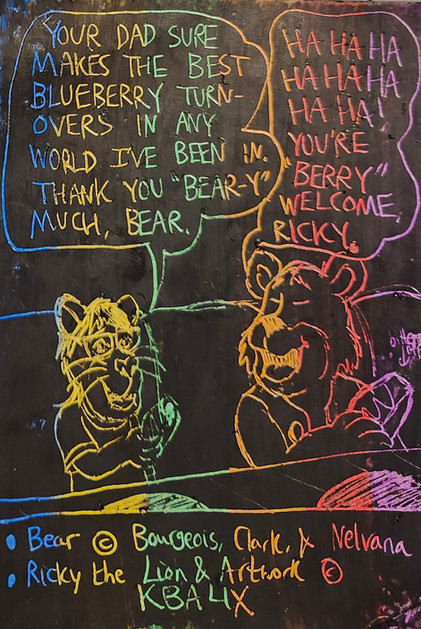 YOUR DAD SURE
MAKES THE BEST
BLUEBERRY TURN-
OVERS IN ANY
WORLD I'VE BEEN IN.
THANK YOU "BEAR-Y"
MUCH, BEAR.
HA HA HA
HA HA HA
HA HA!
YOU'RE
"BERRY"
WELCOME,
RICKY.
• Bear © Bourgeois, Clark, & Nelvana
• Ricky the Lion & Artwork ©
KBA4X